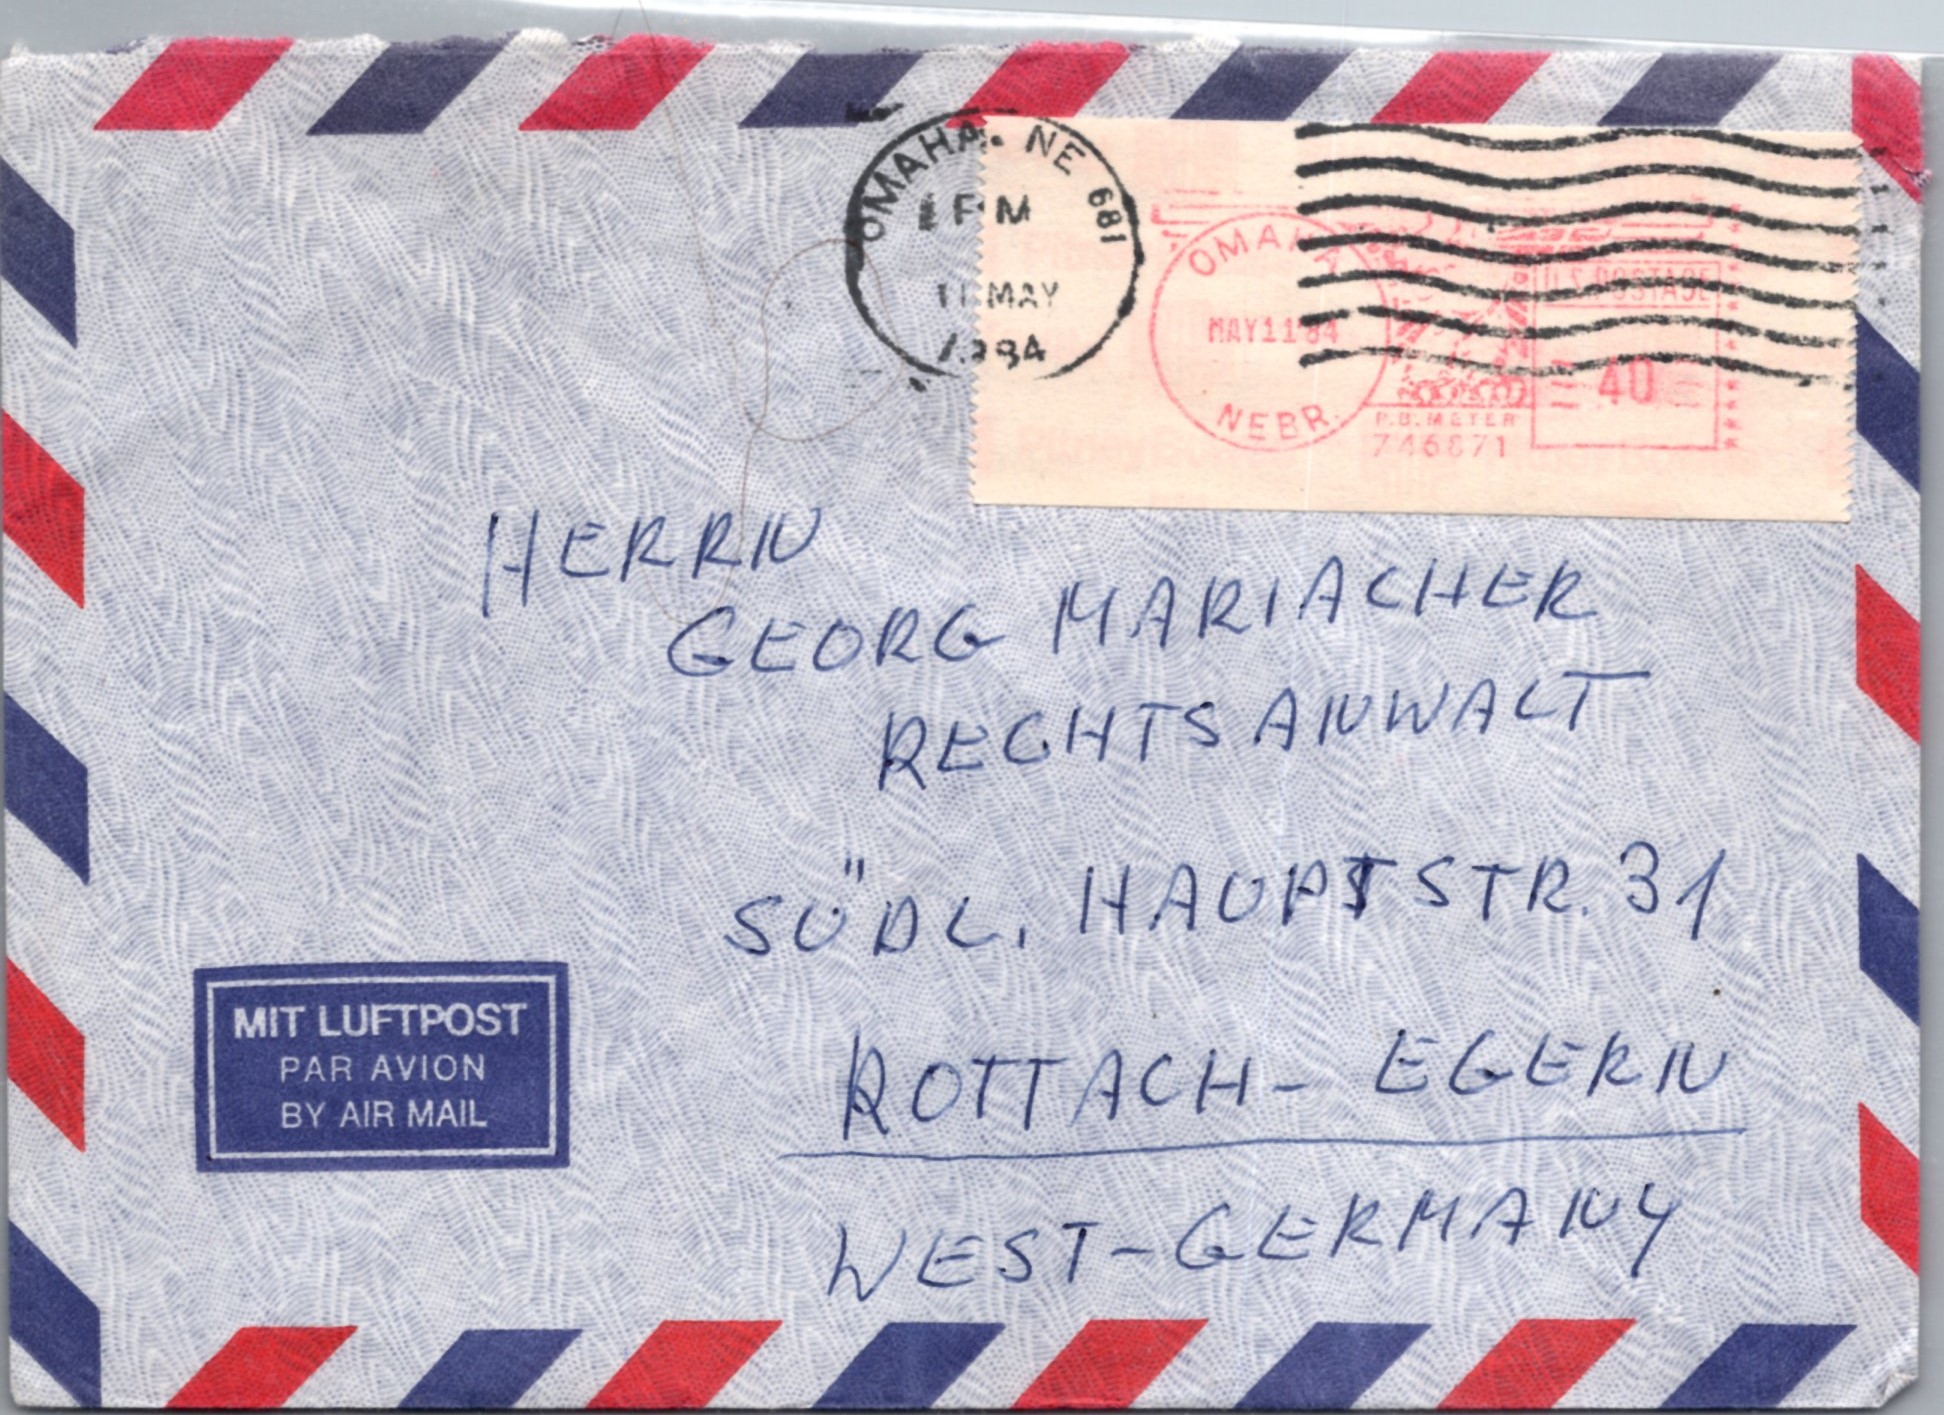 OMAHA, NE 681
PM
11 MAY
1984
OMAHA
MAY 11 '84
NEBR.
P.B. METER
746871
U.S. POSTAGE
40
HERRN
GEORG MARIACHER
RECHTSANWALT
SÜDL. HAUPTSTR. 31
ROTTACH-EGERN
WEST-GERMANY
MIT LUFTPOST
PAR AVION
BY AIR MAIL